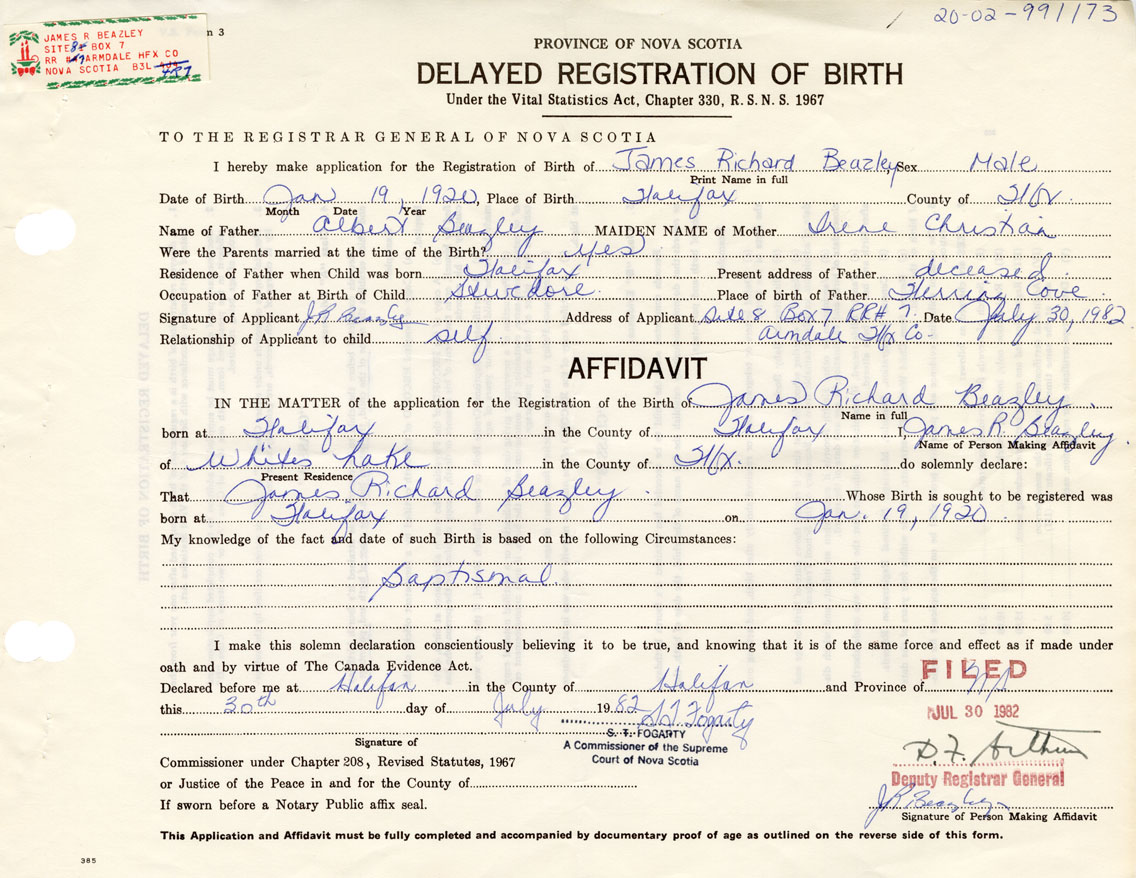 20-02-991173
JAMES R BEAZLEY
SITE 8 BOX 7
RR # 7 ARMDALE HFX CO
NOVA SCOTIA B3L 4R7
m 3
PROVINCE OF NOVA SCOTIA
DELAYED REGISTRATION OF BIRTH
Under the Vital Statistics Act, Chapter 330, R. S. N. S. 1967
TO THE REGISTRAR GENERAL OF NOVA SCOTIA
I hereby make application for the Registration of Birth of James Richard Beazley, Sex Male
Print Name in full
Date of Birth Jan 19, 1920, Place of Birth Halifax County of Hfx.
Month Date Year
Name of Father Albert Beazley MAIDEN NAME of Mother Irene Christian
Were the Parents married at the time of the Birth? yes
Residence of Father when Child was born Halifax Present address of Father deceased.
Occupation of Father at Birth of Child Stevedore. Place of birth of Father Herring Cove
Signature of Applicant J R Beazley Address of Applicant Site 8 Box 7 RR# 7. Date July 30, 1982.
Relationship of Applicant to child self Armdale Hfx Co-
AFFIDAVIT
IN THE MATTER of the application for the Registration of the Birth of James Richard Beazley.
Name in full
born at Halifax in the County of Halifax I, James R. Beazley.
Name of Person Making Affidavit
of Whites Lake in the County of Hfx. do solemnly declare:
Present Residence
That James Richard Beazley. Whose Birth is sought to be registered was
born at Halifax on Jan. 19, 1920
My knowledge of the fact and date of such Birth is based on the following Circumstances:
Baptismal
I make this solemn declaration conscientiously believing it to be true, and knowing that it is of the same force and effect as if made under
oath and by virtue of The Canada Evidence Act.
FILED
Declared before me at Halifax in the County of Halifax and Province of
this 30th day of July 1982
JUL 30 1982
S T Fogarty
S. T. FOGARTY
A Commissioner of the Supreme
Court of Nova Scotia
Signature of
D. F. Arthur
Commissioner under Chapter 208, Revised Statutes, 1967
Deputy Registrar General
or Justice of the Peace in and for the County of
J R Beazley
If sworn before a Notary Public affix seal.
Signature of Person Making Affidavit
This Application and Affidavit must be fully completed and accompanied by documentary proof of age as outlined on the reverse side of this form.
385